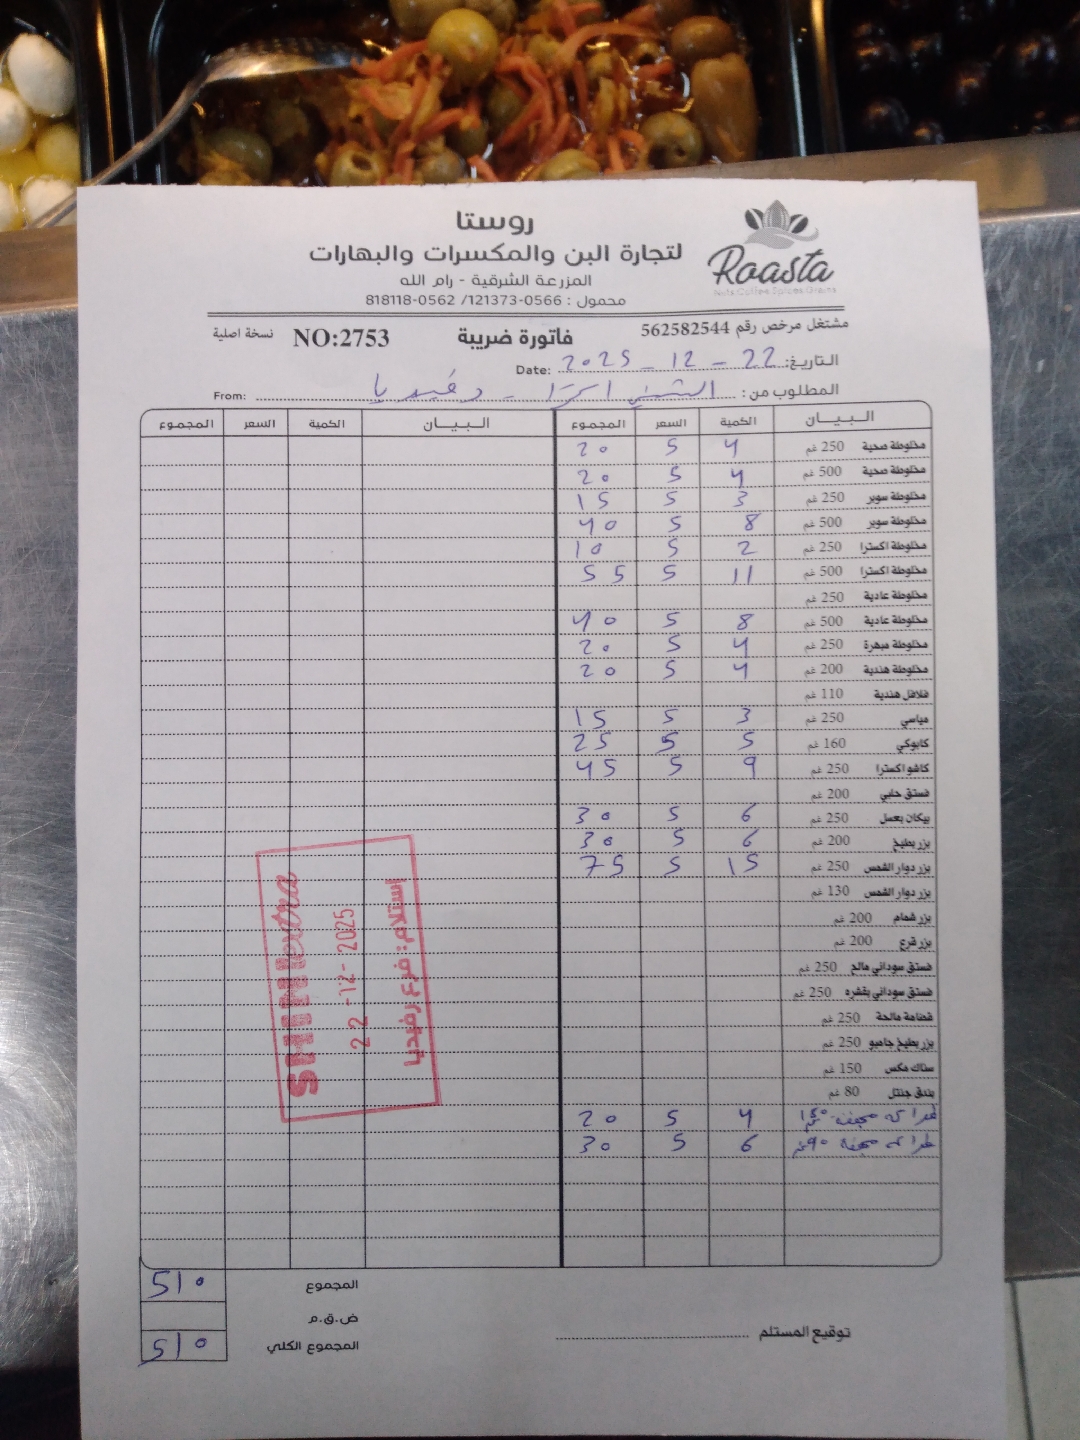 روستا
لتجارة البن والمكسرات والبهارات
المزرعة الشرقية - رام الله
محمول : 0566-121373/ 0562-818118
Roasta
Nuts Coffee Spices Grains
مشتغل مرخص رقم 562582544
فاتورة ضريبة
NO:2753
نسخة اصلية
التاريخ: 22 - 12 - 2025 Date:
المطلوب من : الشني اكسترا - From:
البيان الكمية السعر المجموع البيان الكمية السعر المجموع
مخلوطة صحية 250 غم 4 5 20
مخلوطة صحية 500 غم 4 5 20
مخلوطة سوبر 250 غم 3 5 15
مخلوطة سوبر 500 غم 8 5 40
مخلوطة اكسترا 250 غم 2 5 10
مخلوطة اكسترا 500 غم 11 5 55
مخلوطة عادية 250 غم
مخلوطة عادية 500 غم 8 5 40
مخلوطة مبهرة 250 غم 4 5 20
مخلوطة هندية 200 غم 4 5 20
فلافل هندية 110 غم
مياسي 250 غم 3 5 15
كابوكي 160 غم 5 5 25
كاشو اكسترا 250 غم 9 5 45
فستق حلبي 200 غم
بيكان بعسل 250 غم 6 5 30
بزر بطيخ 200 غم 6 5 30
بزر دوار الشمس 250 غم 15 5 75
بزر دوار الشمس 130 غم
بزر شمام 200 غم
بزر قرع 200 غم
فستق سوداني مالح 250 غم
فستق سوداني بقشره 250 غم
قضامة مالحة 250 غم
بزر بطيخ جامبو 250 غم
سناك مكس 150 غم
بندق جنتل 80 غم
مجففه 150غم 4 5 20
مجففه 90غم 6 5 30
SHINI extra
22 -12- 2025
استلام: فرع
المجموع 510
ض.ق.م
المجموع الكلي 510
توقيع المستلم